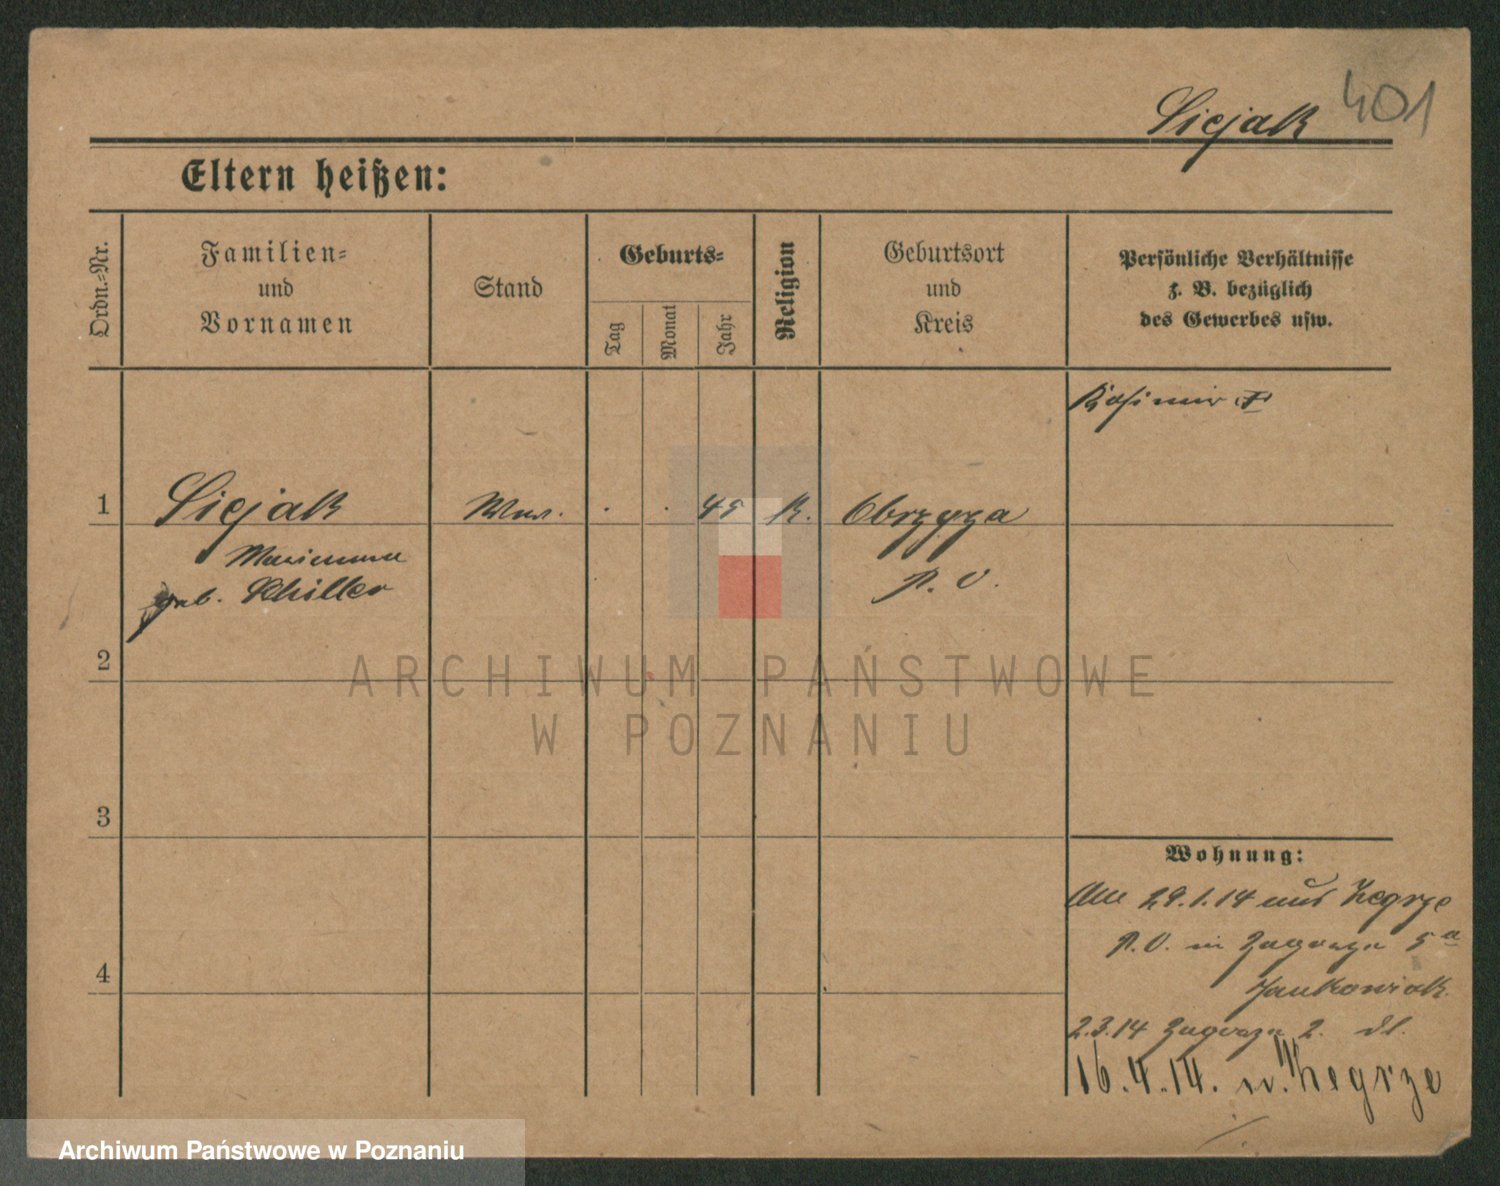 Siejak 401
Eltern heißen:
Ordn.-Nr.
Familien-
und
Vornamen
Stand
Geburts-
Tag
Monat
Jahr
Religion
Geburtsort
und
Kreis
Persönliche Verhältnisse
z. B. bezüglich
des Gewerbes usw.
Kasimir †
1 Siejak Ww. . . 45 K. Obrzyza
Marianna P. O.
geb. Schiller
2
3
4
Wohnung:
Am 29.1.14 aus Zegrze
P. O. in Zagorze 5a
Jankowiak
2.3.14 Zagorze 2.
16.4.14. n. Zegrze
ARCHIWUM PAŃSTWOWE
W POZNANIU
Archiwum Państwowe w Poznaniu